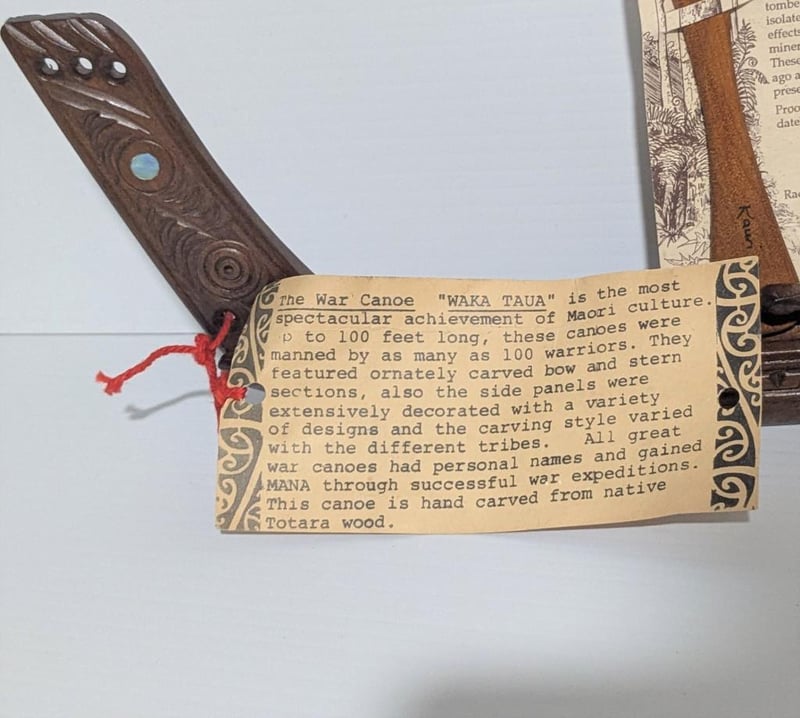 The War Canoe "WAKA TAUA" is the most
spectacular achievement of Maori culture.
p to 100 feet long, these canoes were
manned by as many as 100 warriors. They
featured ornately carved bow and stern
sections, also the side panels were
extensively decorated with a variety
of designs and the carving style varied
with the different tribes. All great
war canoes had personal names and gained
MANA through successful war expeditions.
This canoe is hand carved from native
Totara wood.
tombe
isolate
effects
miner
These
ago a
prese
Proo
date
Ra
Kauri